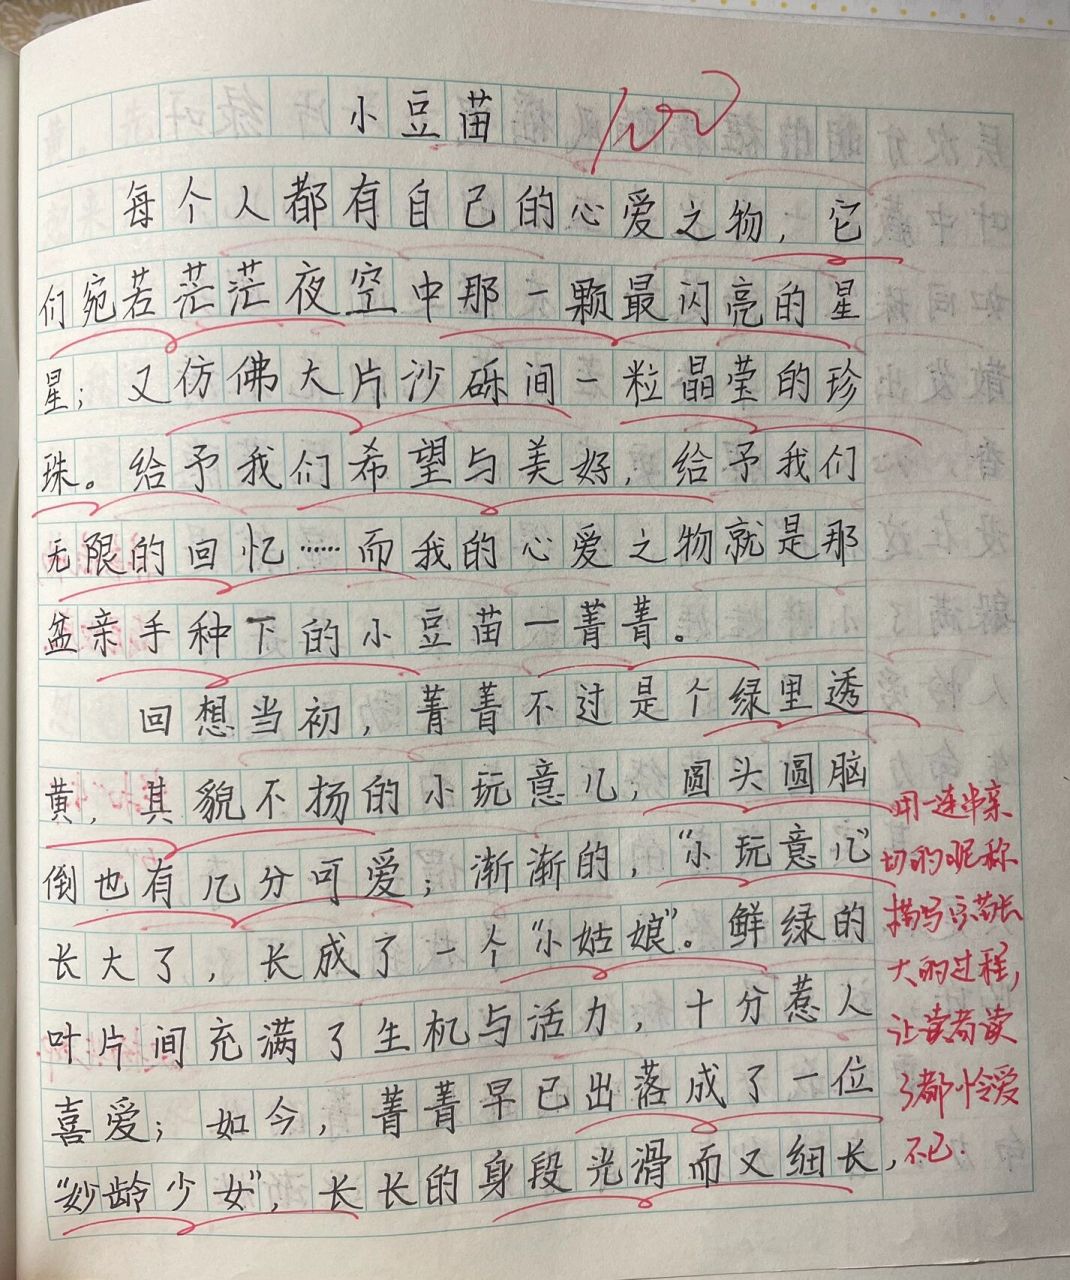 小豆苗
100
每个人都有自己的心爱之物，它
们宛若茫茫夜空中那一颗最闪亮的星
星；又仿佛大片沙砾间一粒晶莹的珍
珠。给予我们希望与美好，给予我们
无限的回忆……而我的心爱之物就是那
盆亲手种下的小豆苗一菁菁。
回想当初，菁菁不过是个绿里透
黄，其貌不扬的小玩意儿；圆头圆脑
倒也有几分可爱；渐渐的，“小玩意儿”
长大了，长成了一个“小姑娘”。鲜绿的
叶片间充满了生机与活力，十分惹人
喜爱；如今，菁菁早已出落成了一位
“妙龄少女”，长长的身段光滑而又细长，
用一连串亲
切的昵称
描写豆苗长
大的过程，
让读者读
了都怜爱
不已.